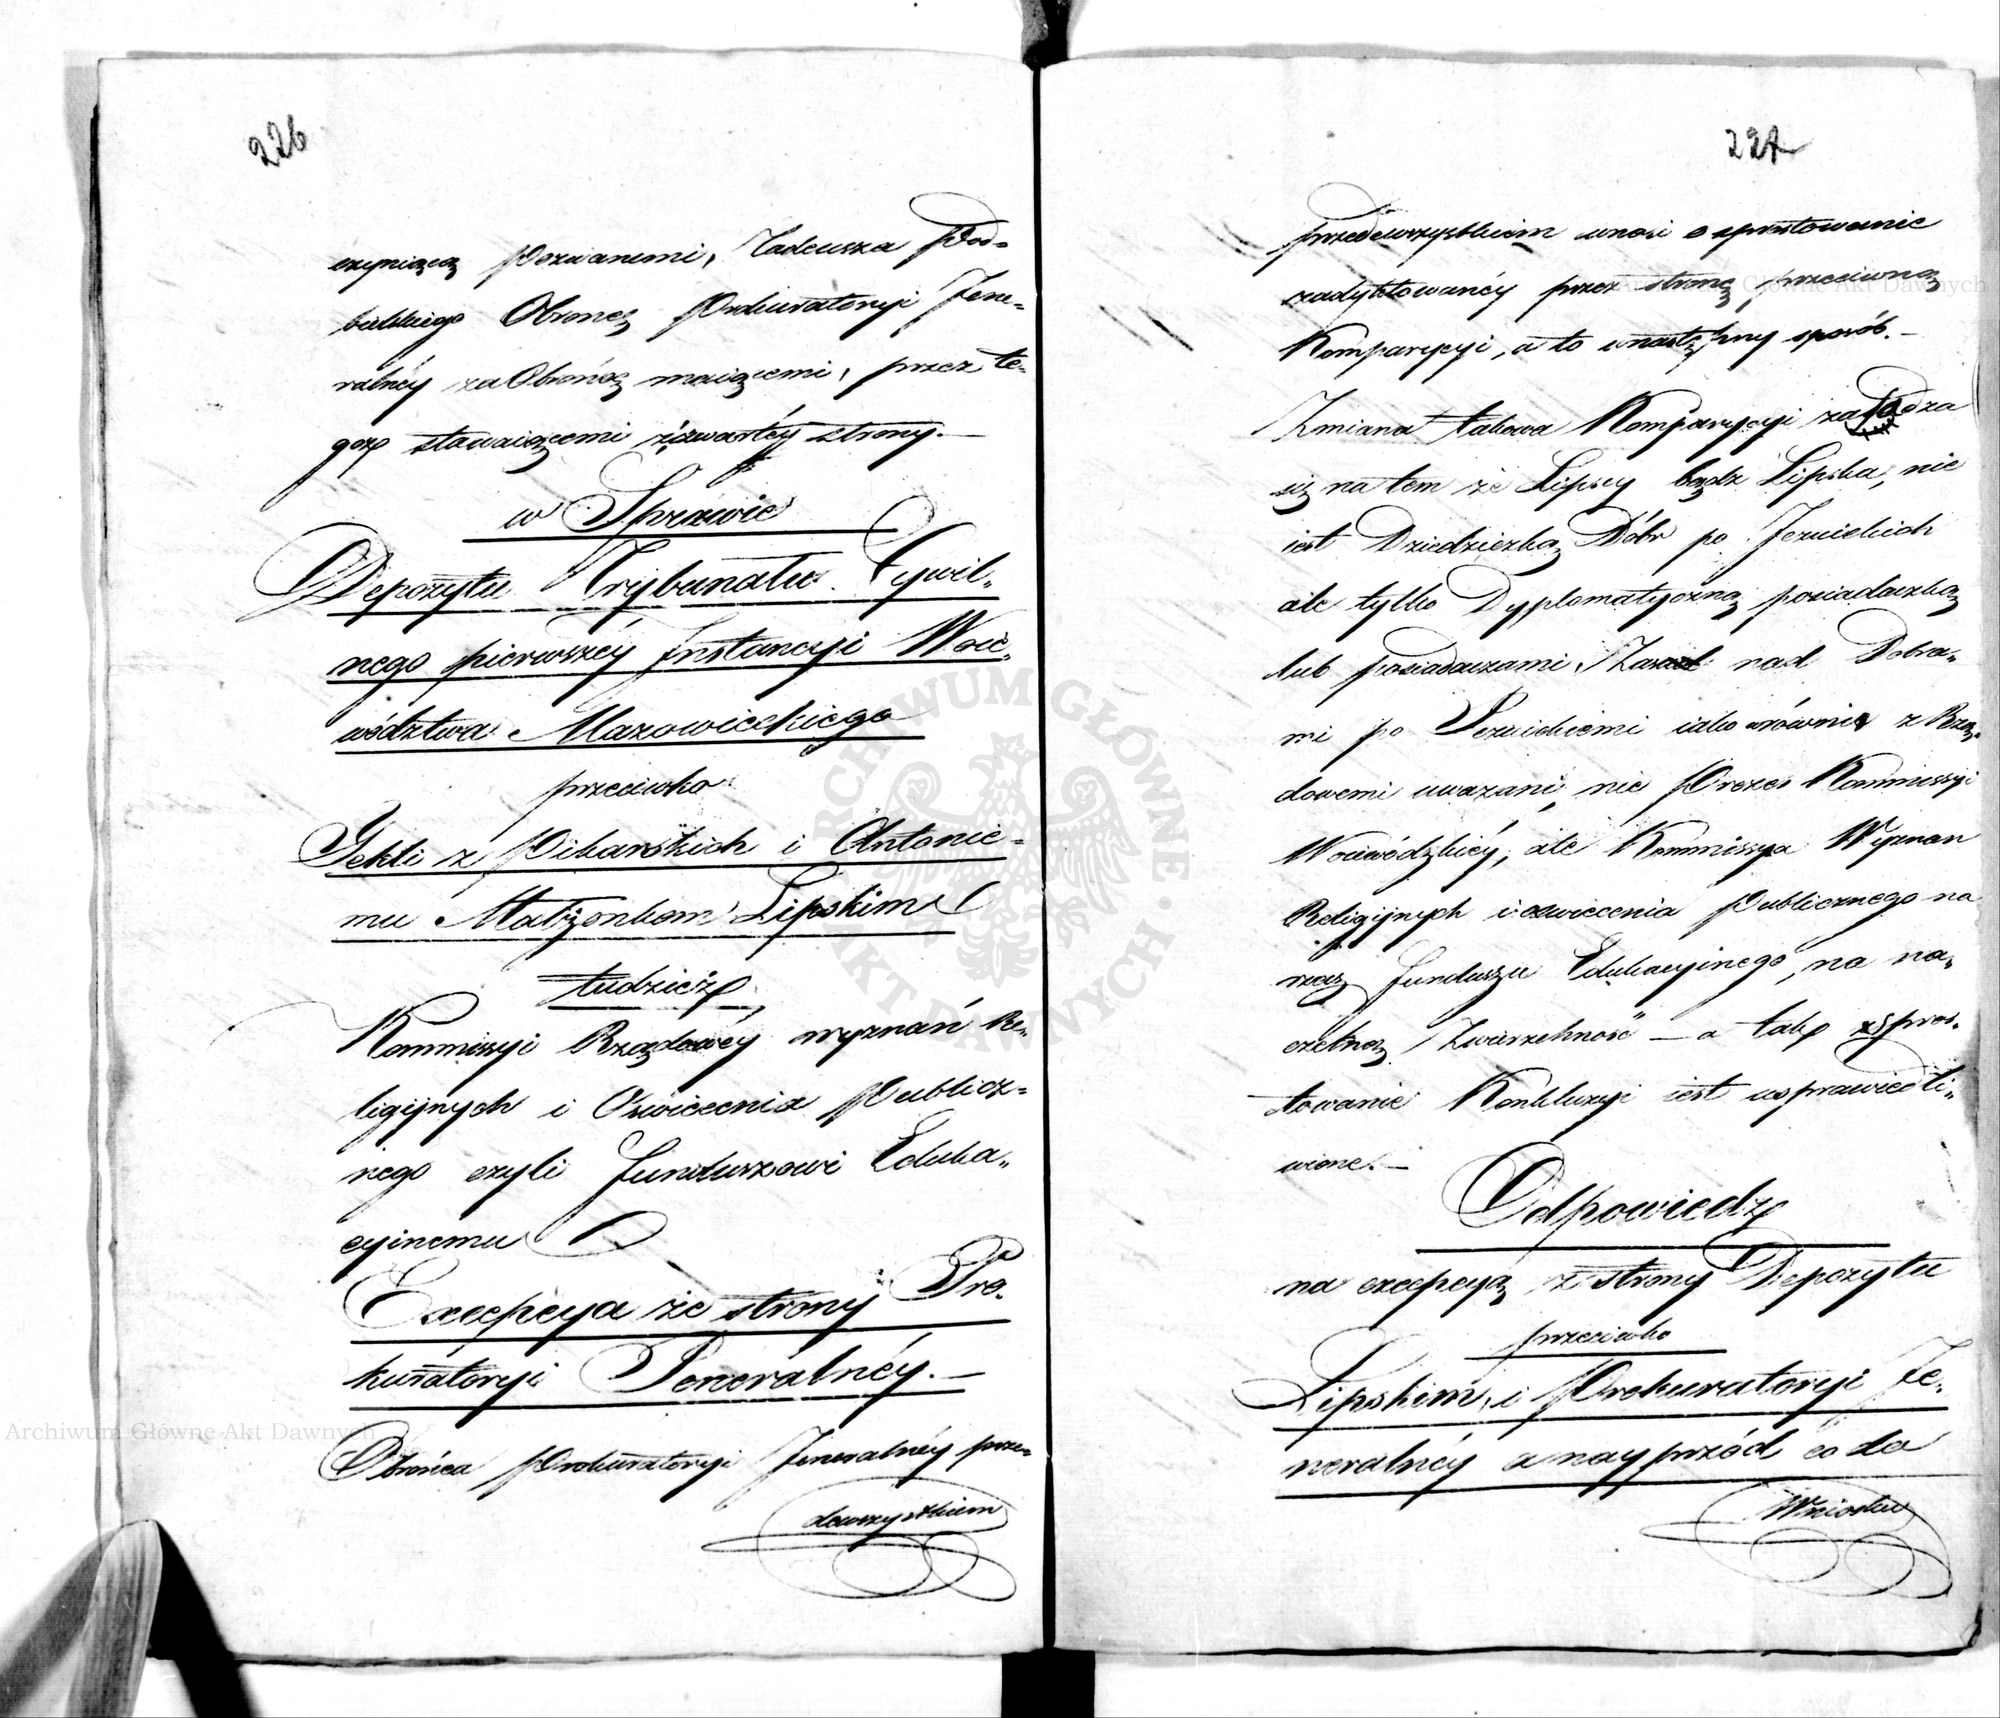 226
czyniącą Pozwanemi, Tadeusza Pod=
bielskiego Obrońcę Prokuratoryi Jene=
ralnéy za Obrońcę maiącemi, przez te=
goż stawaiącemi z czwartéy strony.—
w Sprawie
Depozytu Trybunału Cywil=
nego pierwszéy Instancyi Woie=
wództwa Mazowieckiego
przeciwko
Tekli z Piharskich i Antonie=
mu Małżonkom Lipskim
tudzież
Kommissyi Rządowéy wyznań Re=
ligijnych i Oświecenia Publicz=
nego czyli Funduszowi Eduka=
cyinemu
Excepcya ze strony Pro=
kuratoryi Jeneralnéy.—
Obrońca Prokuratoryi Jeneralnéy prze=
dewszystkiem
227
przedewszystkiem wnosi o sprostowanie
zadyktowanéy przez stronę przeciwną
Komparycyi, a to w następny sposób.—
Zmiana takowa Komparycyi zasadza
się na tem że Lipscy bądz Lipska, nie
iest Dziedziczką Dóbr po Jezuickich
ale tylko Dyplomatyczną posiadaczką
lub posiadaczami, Zarząd nad Dobra=
mi po Jezuickiemi iako równie z Rzą=
dowemi uważani, nie Prezes Kommissyi
Woiewódzkiéy, ale Kommissya Wyznan
Religijnych i oswiecenia Publicznego na
rzecz Funduszu Edukacyjnego, na na=
czelną Zwierzchność — a tak sspros=
towanie Konkluzyi iest usprawiedli=
wione.—
Odpowiedź
na excepcyą z strony Depozytu
przeciwko
Lipskim, i Prokuratoryi Je=
neralnéy a nayprzód co do
Wniosku
Archiwum Główne Akt Dawnych
Archiwum Główne Akt Dawnych
ARCHIWUM GŁÓWNE AKT DAWNYCH